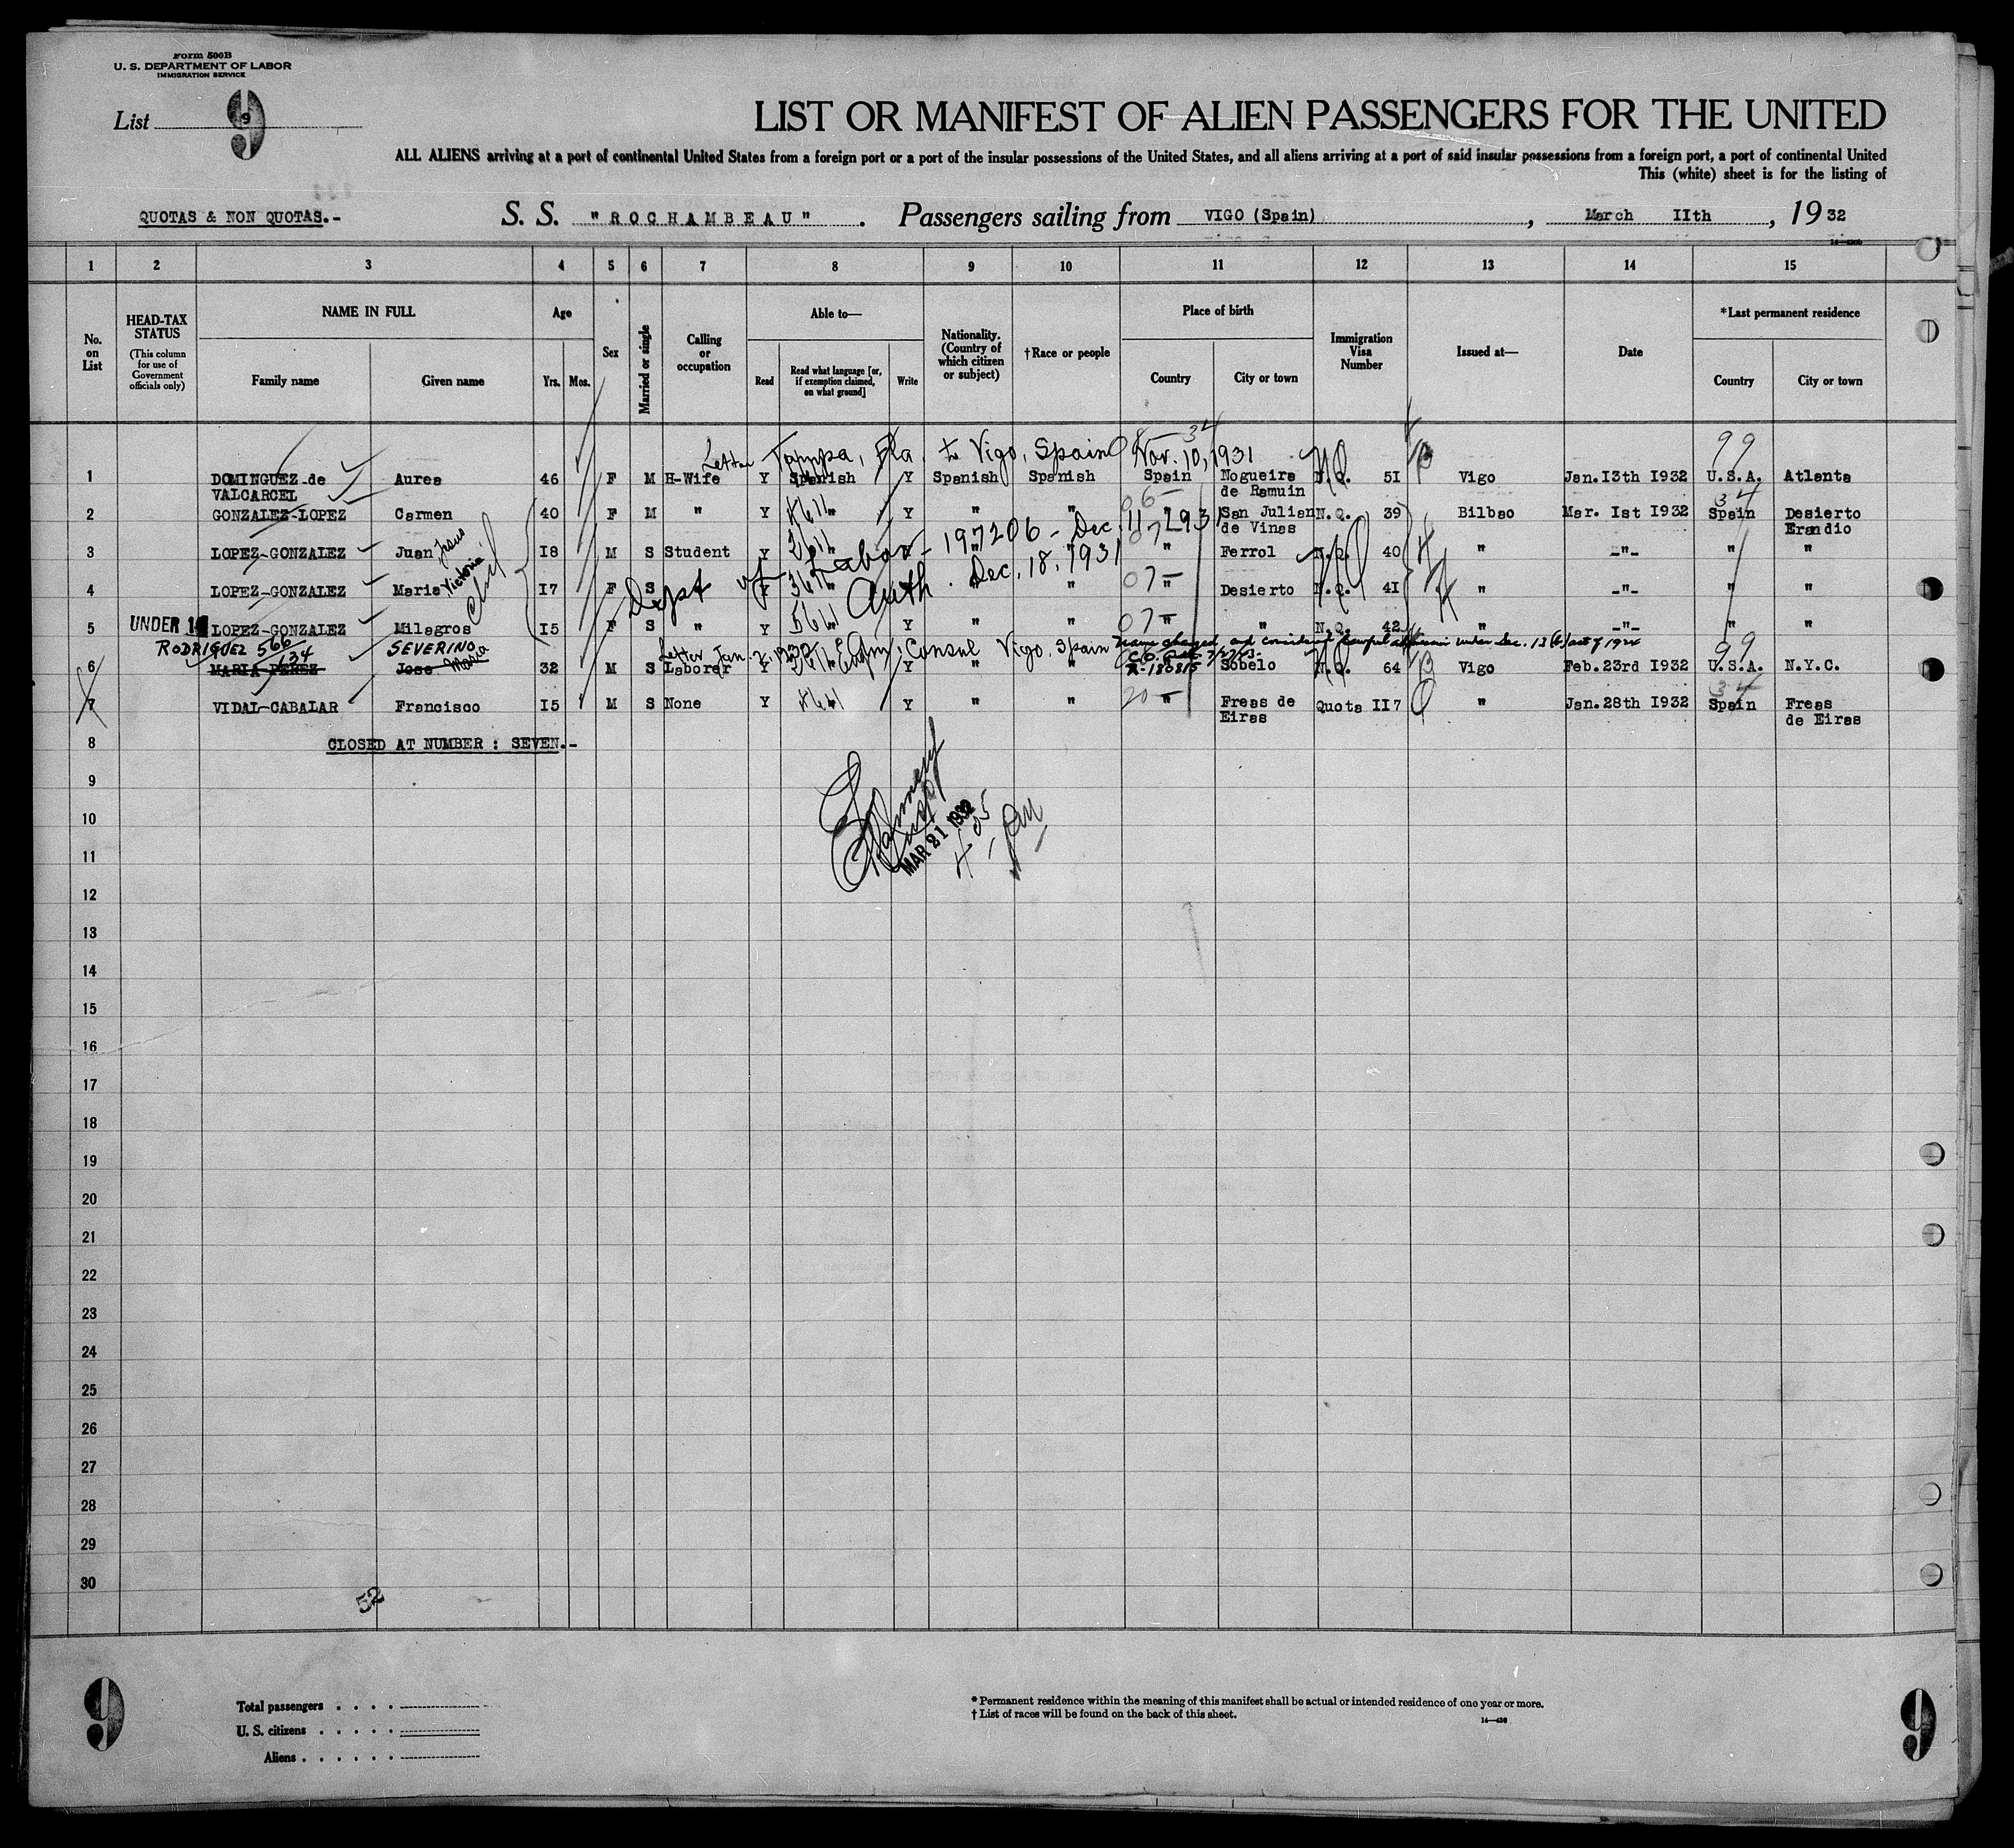 Form 500B
U. S. DEPARTMENT OF LABOR
IMMIGRATION SERVICE
List 9
LIST OR MANIFEST OF ALIEN PASSENGERS FOR THE UNITED
ALL ALIENS arriving at a port of continental United States from a foreign port or a port of the insular possessions of the United States, and all aliens arriving at a port of said insular possessions from a foreign port, a port of continental United
This (white) sheet is for the listing of
QUOTAS & NON QUOTAS.- S. S. "ROCHAMBEAU". Passengers sailing from VIGO (Spain), March IIth, 19 32
1 2 3 4 5 6 7 8 9 10 11 12 13 14 15
No. on List
HEAD-TAX STATUS
(This column for use of Government officials only)
NAME IN FULL
Family name Given name
Age
Yrs. Mos.
Sex
Married or single
Calling or occupation
Able to—
Read Read what language [or, if exemption claimed, on what ground] Write
Nationality. (Country of which citizen or subject)
†Race or people
Place of birth
Country City or town
Immigration Visa Number
Issued at—
Date
*Last permanent residence
Country City or town
Letter Tampa, Fla. to Vigo, Spain Nov. 10, 1931
1 DOMINGUEZ-de VALCARCEL Aurea 46 F M H-Wife Y Spanish Y Spanish Spanish Spain Nogueira de Ramuin N.Q. 5I Vigo Jan.I3th I932 U.S.A. Atlanta
2 GONZALEZ-LOPEZ Carmen 40 F M " Y " Y " " " San Julian de Vinas N.Q. 39 Bilbao Mar. Ist I932 Spain Desierto Erandio
3 LOPEZ-GONZALEZ Juan Jesus I8 M S Student Y " " " " Ferrol N.Q. 40 " -"- " "
Dept of Labor - 197206 - Dec. 11, 1931
4 LOPEZ-GONZALEZ Maria Victoria I7 F S Y " " " " Desierto N.Q. 4I " -"- " "
Auth. Dec. 18, 1931
5 UNDER 16 LOPEZ-GONZALEZ Milagros I5 F S " Y " Y " " " " N.Q. 42 " -"- " "
RODRIGUEZ 566 134 SEVERINO
Letter Jan. 2, 1932 Consul Vigo, Spain
Name changed and considered lawful admission under Sec. 13 (b) act of 1924
6 MARIA-PEREZ Jose Maria 32 M S Laborer Y " Y " " Sobelo N.Q. 64 Vigo Feb.23rd I932 U.S.A. N.Y.C.
7 VIDAL-CABALAR Francisco I5 M S None Y " Y " " " Freas de Eiras Quota II7 " Jan.28th I932 Spain Freas de Eiras
8 CLOSED AT NUMBER : SEVEN.-
9
MAR 21 1932
10
11
12
13
14
15
16
17
18
19
20
21
22
23
24
25
26
27
28
29
30
52
9
Total passengers
U. S. citizens
Aliens
* Permanent residence within the meaning of this manifest shall be actual or intended residence of one year or more.
† List of races will be found on the back of this sheet.
9